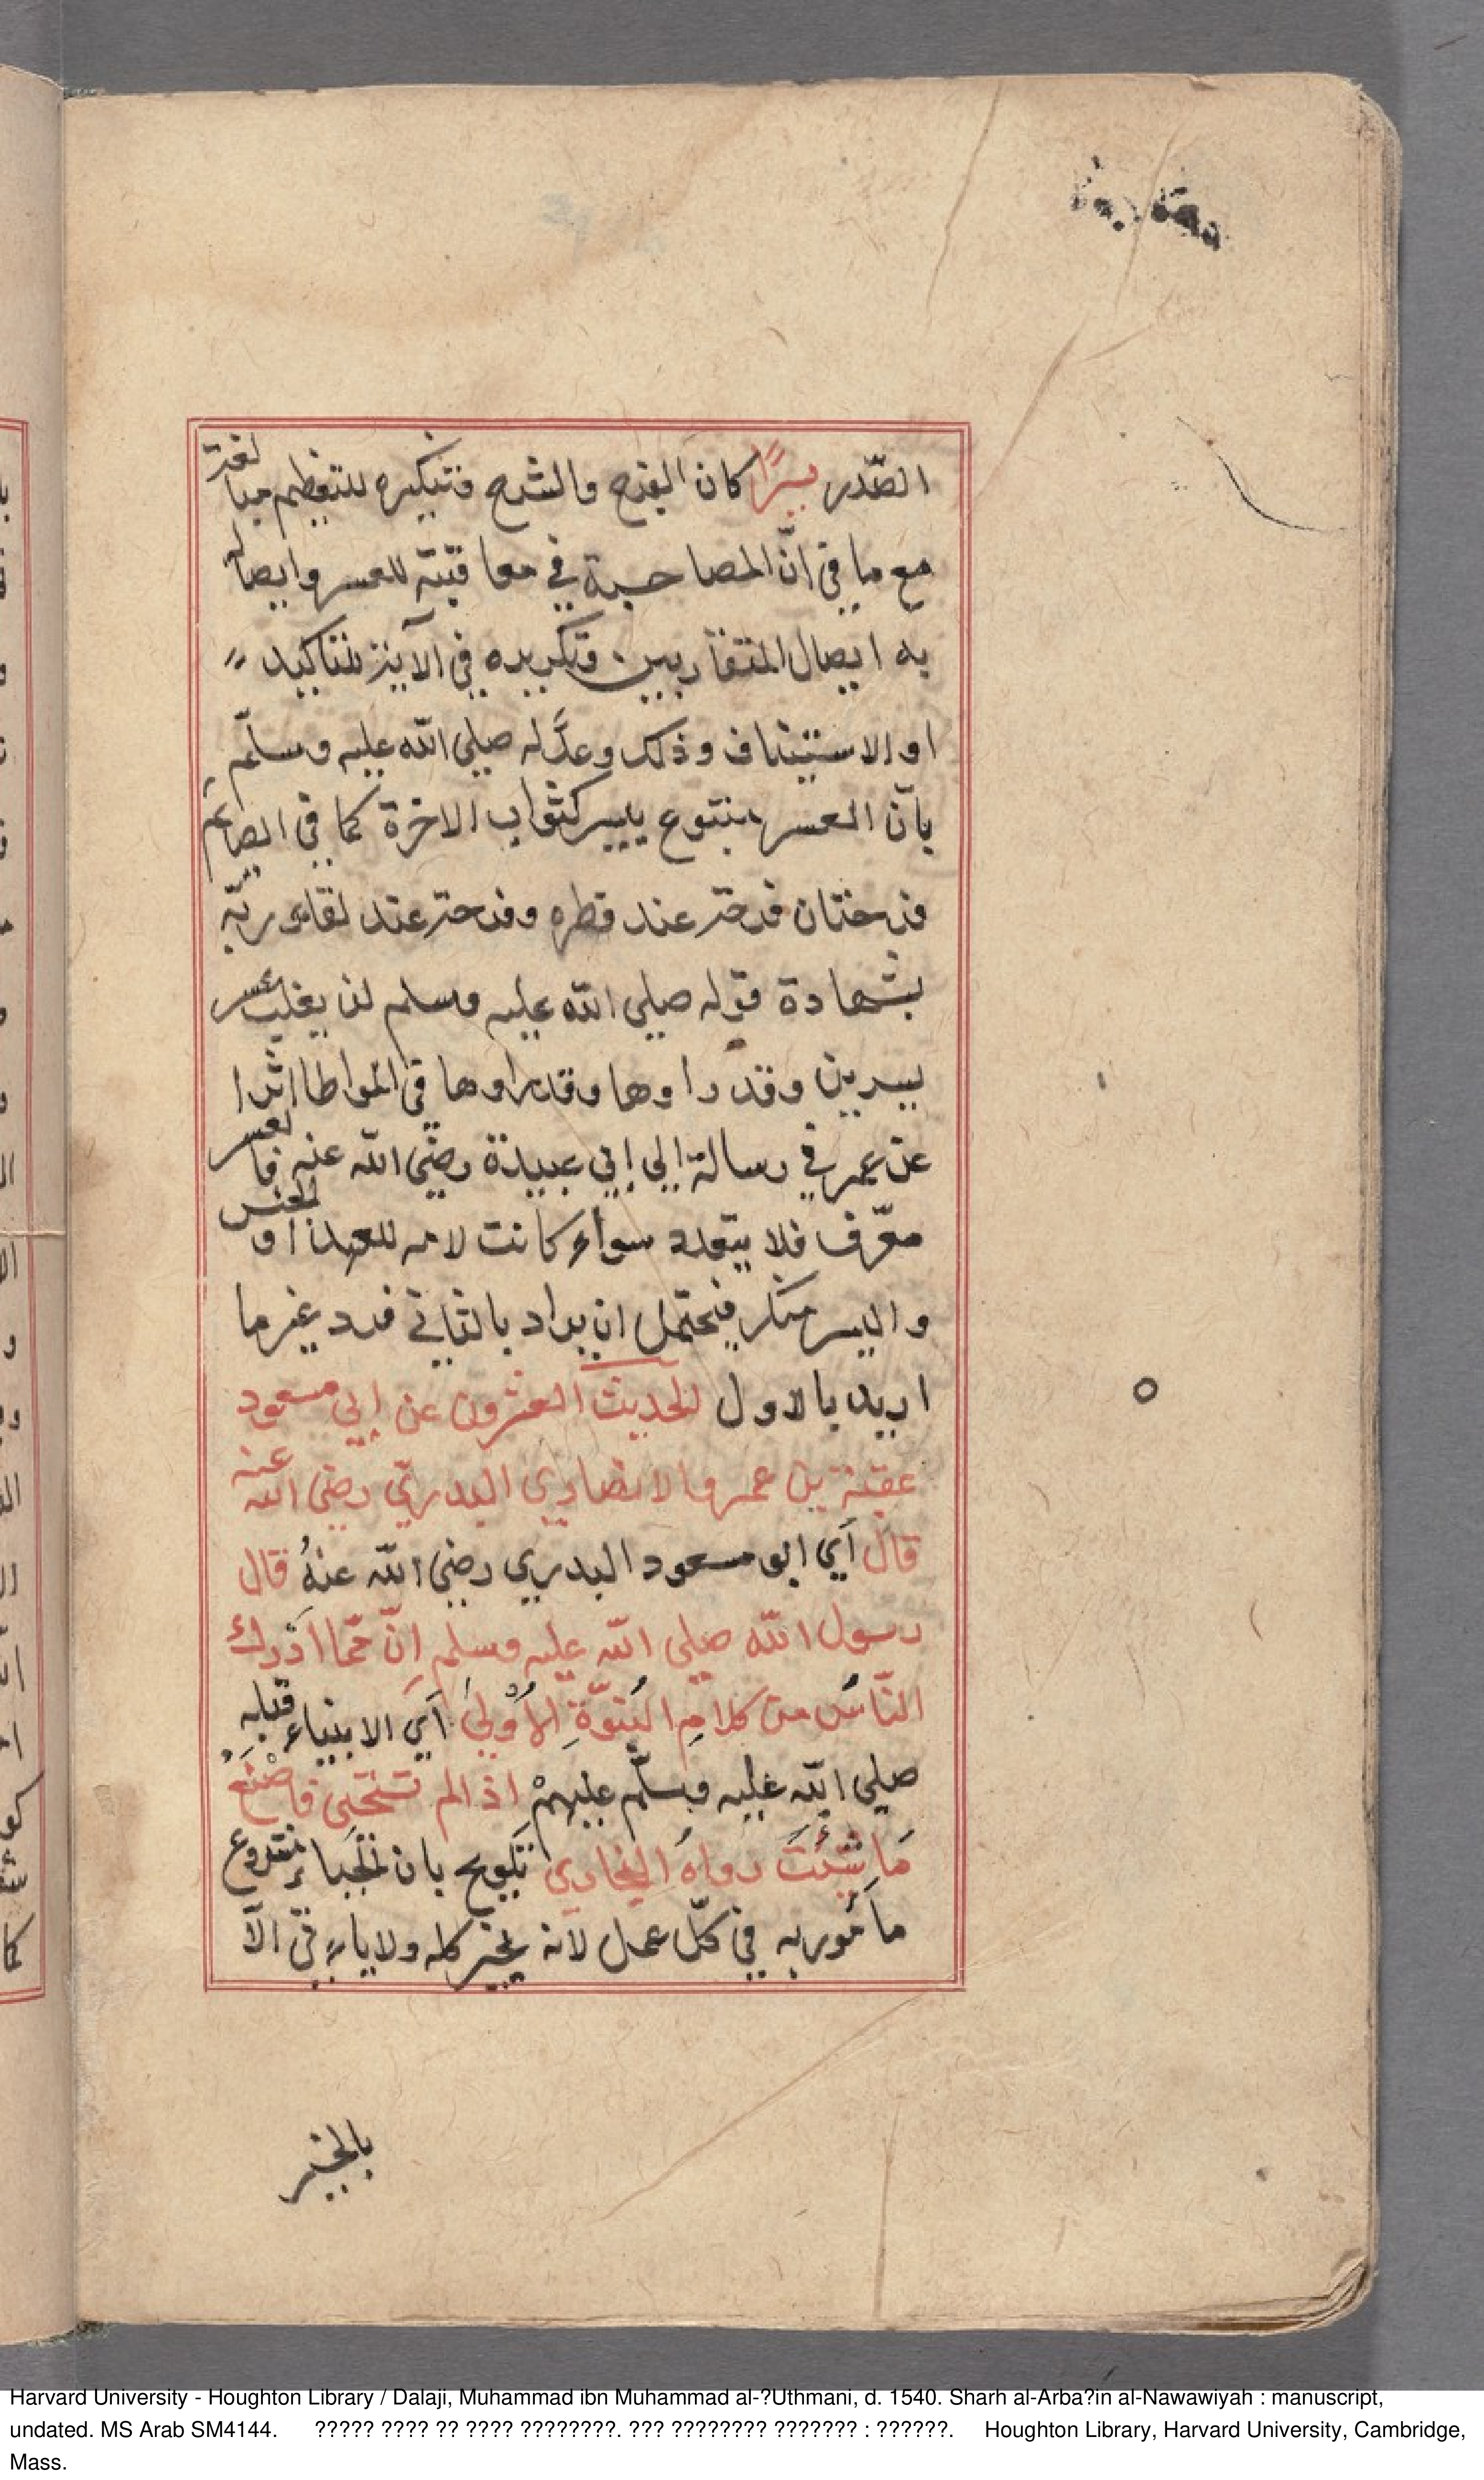 الصّدر يسرًا كان الفرح والشرح فتنكيره للتعظيم مبالغة
مع ما في انّ المصاحبة في معاقبته للعسر وايصال
به ايصال المتقاربين وتكريره في الآية للتاكيد
او الاستيناف وذلك وعدٌ له صلي الله عليه وسلّم
بانّ العسر متنوع بيسر كثواب الاخرة كما في الصائم
فرحتان فرحة عند فطره وفرحة عند لقاء ربّه
بشهادة قوله صلي الله عليه وسلم لن يغلب عسر
يسرين وقد راوها وقد راوها في المواطا اثرا
عن عمر في رسالة الي ابي عبيدة رضي الله عنه فالعسر
معّرف فلا يتعدد سواء كانت لامه للعهد او الجنس
واليسر منكر فيحتمل ان يراد بالثاني فرد غير ما
اريد بالاول الحديث العشرون عن ابي مسعود
عقبة بن عمرو الانصاري البدريّ رضي الله عنه
قال اَي ابو مسعود البدري رضي الله عنهُ قال
رسول الله صلي الله عليه وسلم انّ ممّا ادرك
النّاسُ من كلامِ النُبُوّةِ الْاُوْليٰ اَي الانبياء قبله
صلي الله عليه وسلّم عليهمْ اذ الم تستحيي فاصْنَعْ
مَا شِئْتَ رواهُ البخاري تلويح بان الحياء نتدرع
مأمور به في كلّ عمل لانه خير كله ولا ياتي الّا
بالخير
Harvard University - Houghton Library / Dalaji, Muhammad ibn Muhammad al-?Uthmani, d. 1540. Sharh al-Arba?in al-Nawawiyah : manuscript,
undated. MS Arab SM4144. ????? ???? ?? ???? ????????. ??? ???????? ??????? : ??????. Houghton Library, Harvard University, Cambridge,
Mass.